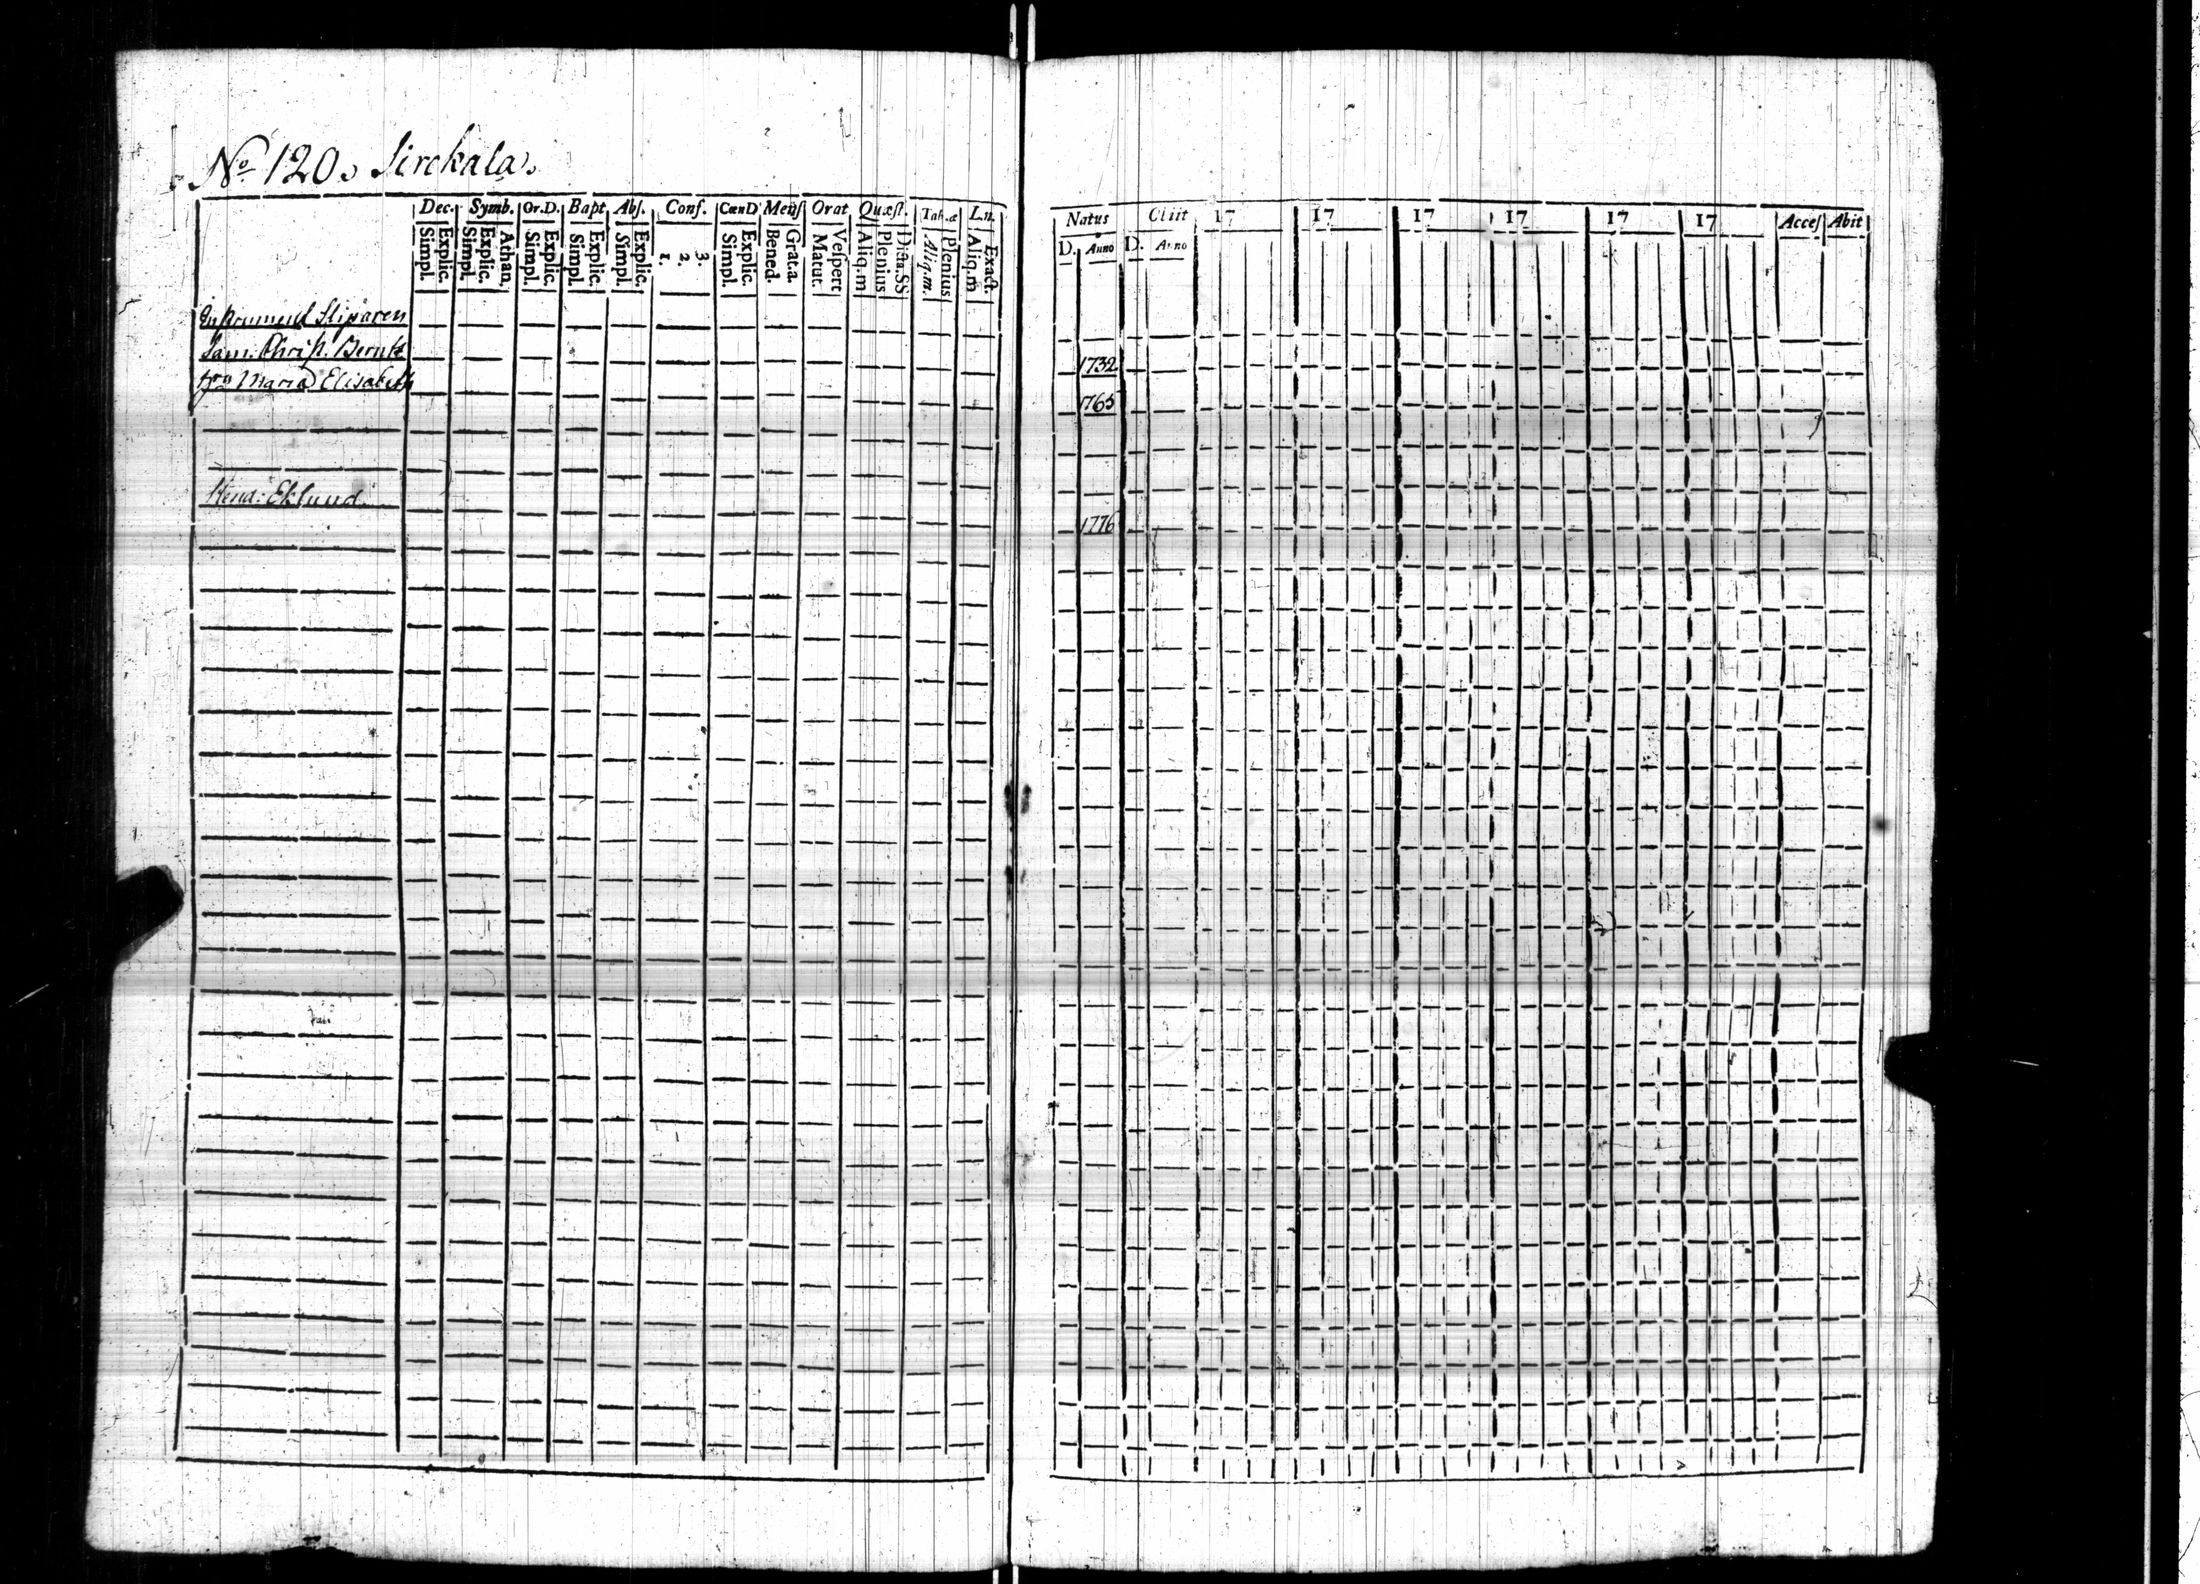 No 120. Sirckala.
Dec. Symb. Or.D. Bapt. Abs. Conf. CœnD Mens Orat Quæst. Tab.æ L.n.
Simpl. Explic. Simpl. Explic. Athan. Simpl. Explic. Simpl. Explic. Simpl. Explic. 1. 2. 3. Simpl. Explic. Bened. Grat.a. Matut. Vespert Aliq.m Plenius Dicta.SS Aliq.m. Plenius Aliq.m Exact.
Instrument Sliparen
Sam. Christ. Berntz
Maria Elisabeth
Eklund
Natus Obiit 17 17 17 17 17 17 Acces Abit
D. Anno D. Anno
1732
1765
1776